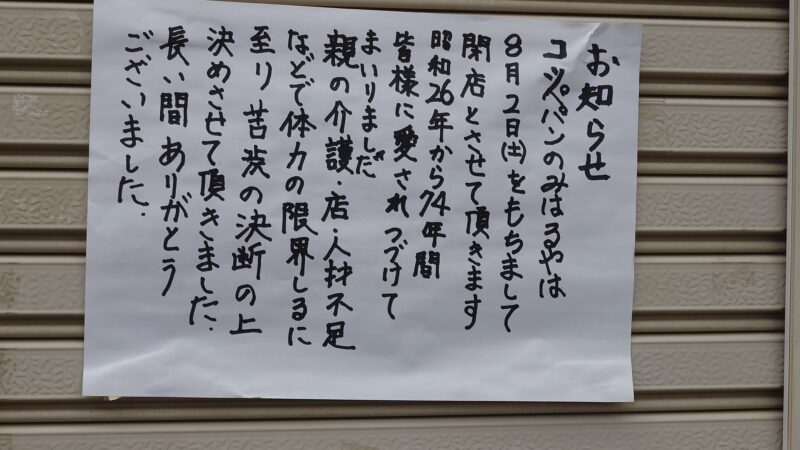 お知らせ
コッペパンのみはるやは
8月2日(土)をもちまして
閉店とさせて頂きます
昭和26年から74年間
皆様に愛されつづけて
まいりましただ
親の介護・店・人材不足
などで体力の限界しるに
至り苦渋の決断の上
決めさせて頂きました.
長い間ありがとう
ございました.